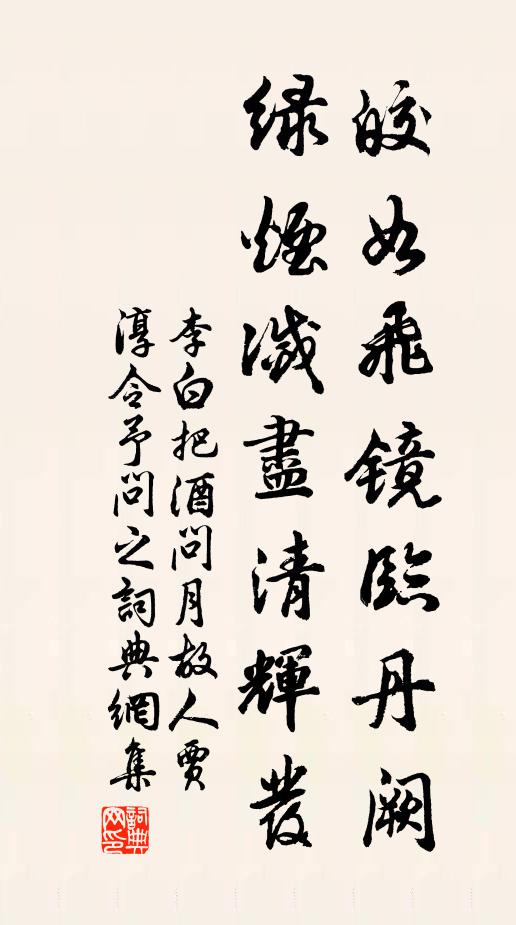 皎如飛镜臨丹阙
绿煙滅盡清輝發
李白把酒問月故人賈
淳令予問之詞典網集
詞典
网印